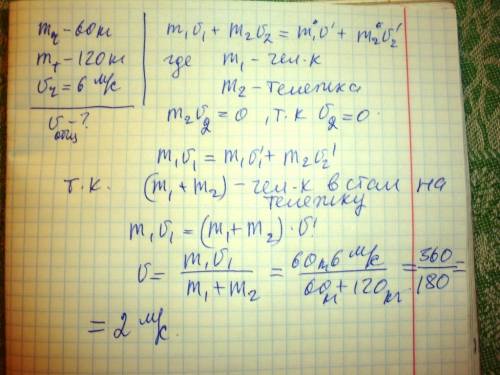 mч-60кг
mт-120кг
υч=6 м/с
υобщ-?
m₁υ₁ + m₂υ₂ = m₁υ' + m₂υ₂'
где m₁ - чел-к
m₂ - тележка
m₂υ₂=0, т.к υ₂=0.
m₁υ₁ = m₁υ₁' + m₂υ₂'
т.к. (m₁+m₂) - чел-к встал на
тележку
m₁υ₁ = (m₁+m₂)·υ'
υ = m₁υ₁ / m₁+m₂ = 60кг 6 м/с / 60кг+120кг = 360 / 180 =
= 2 м/с.